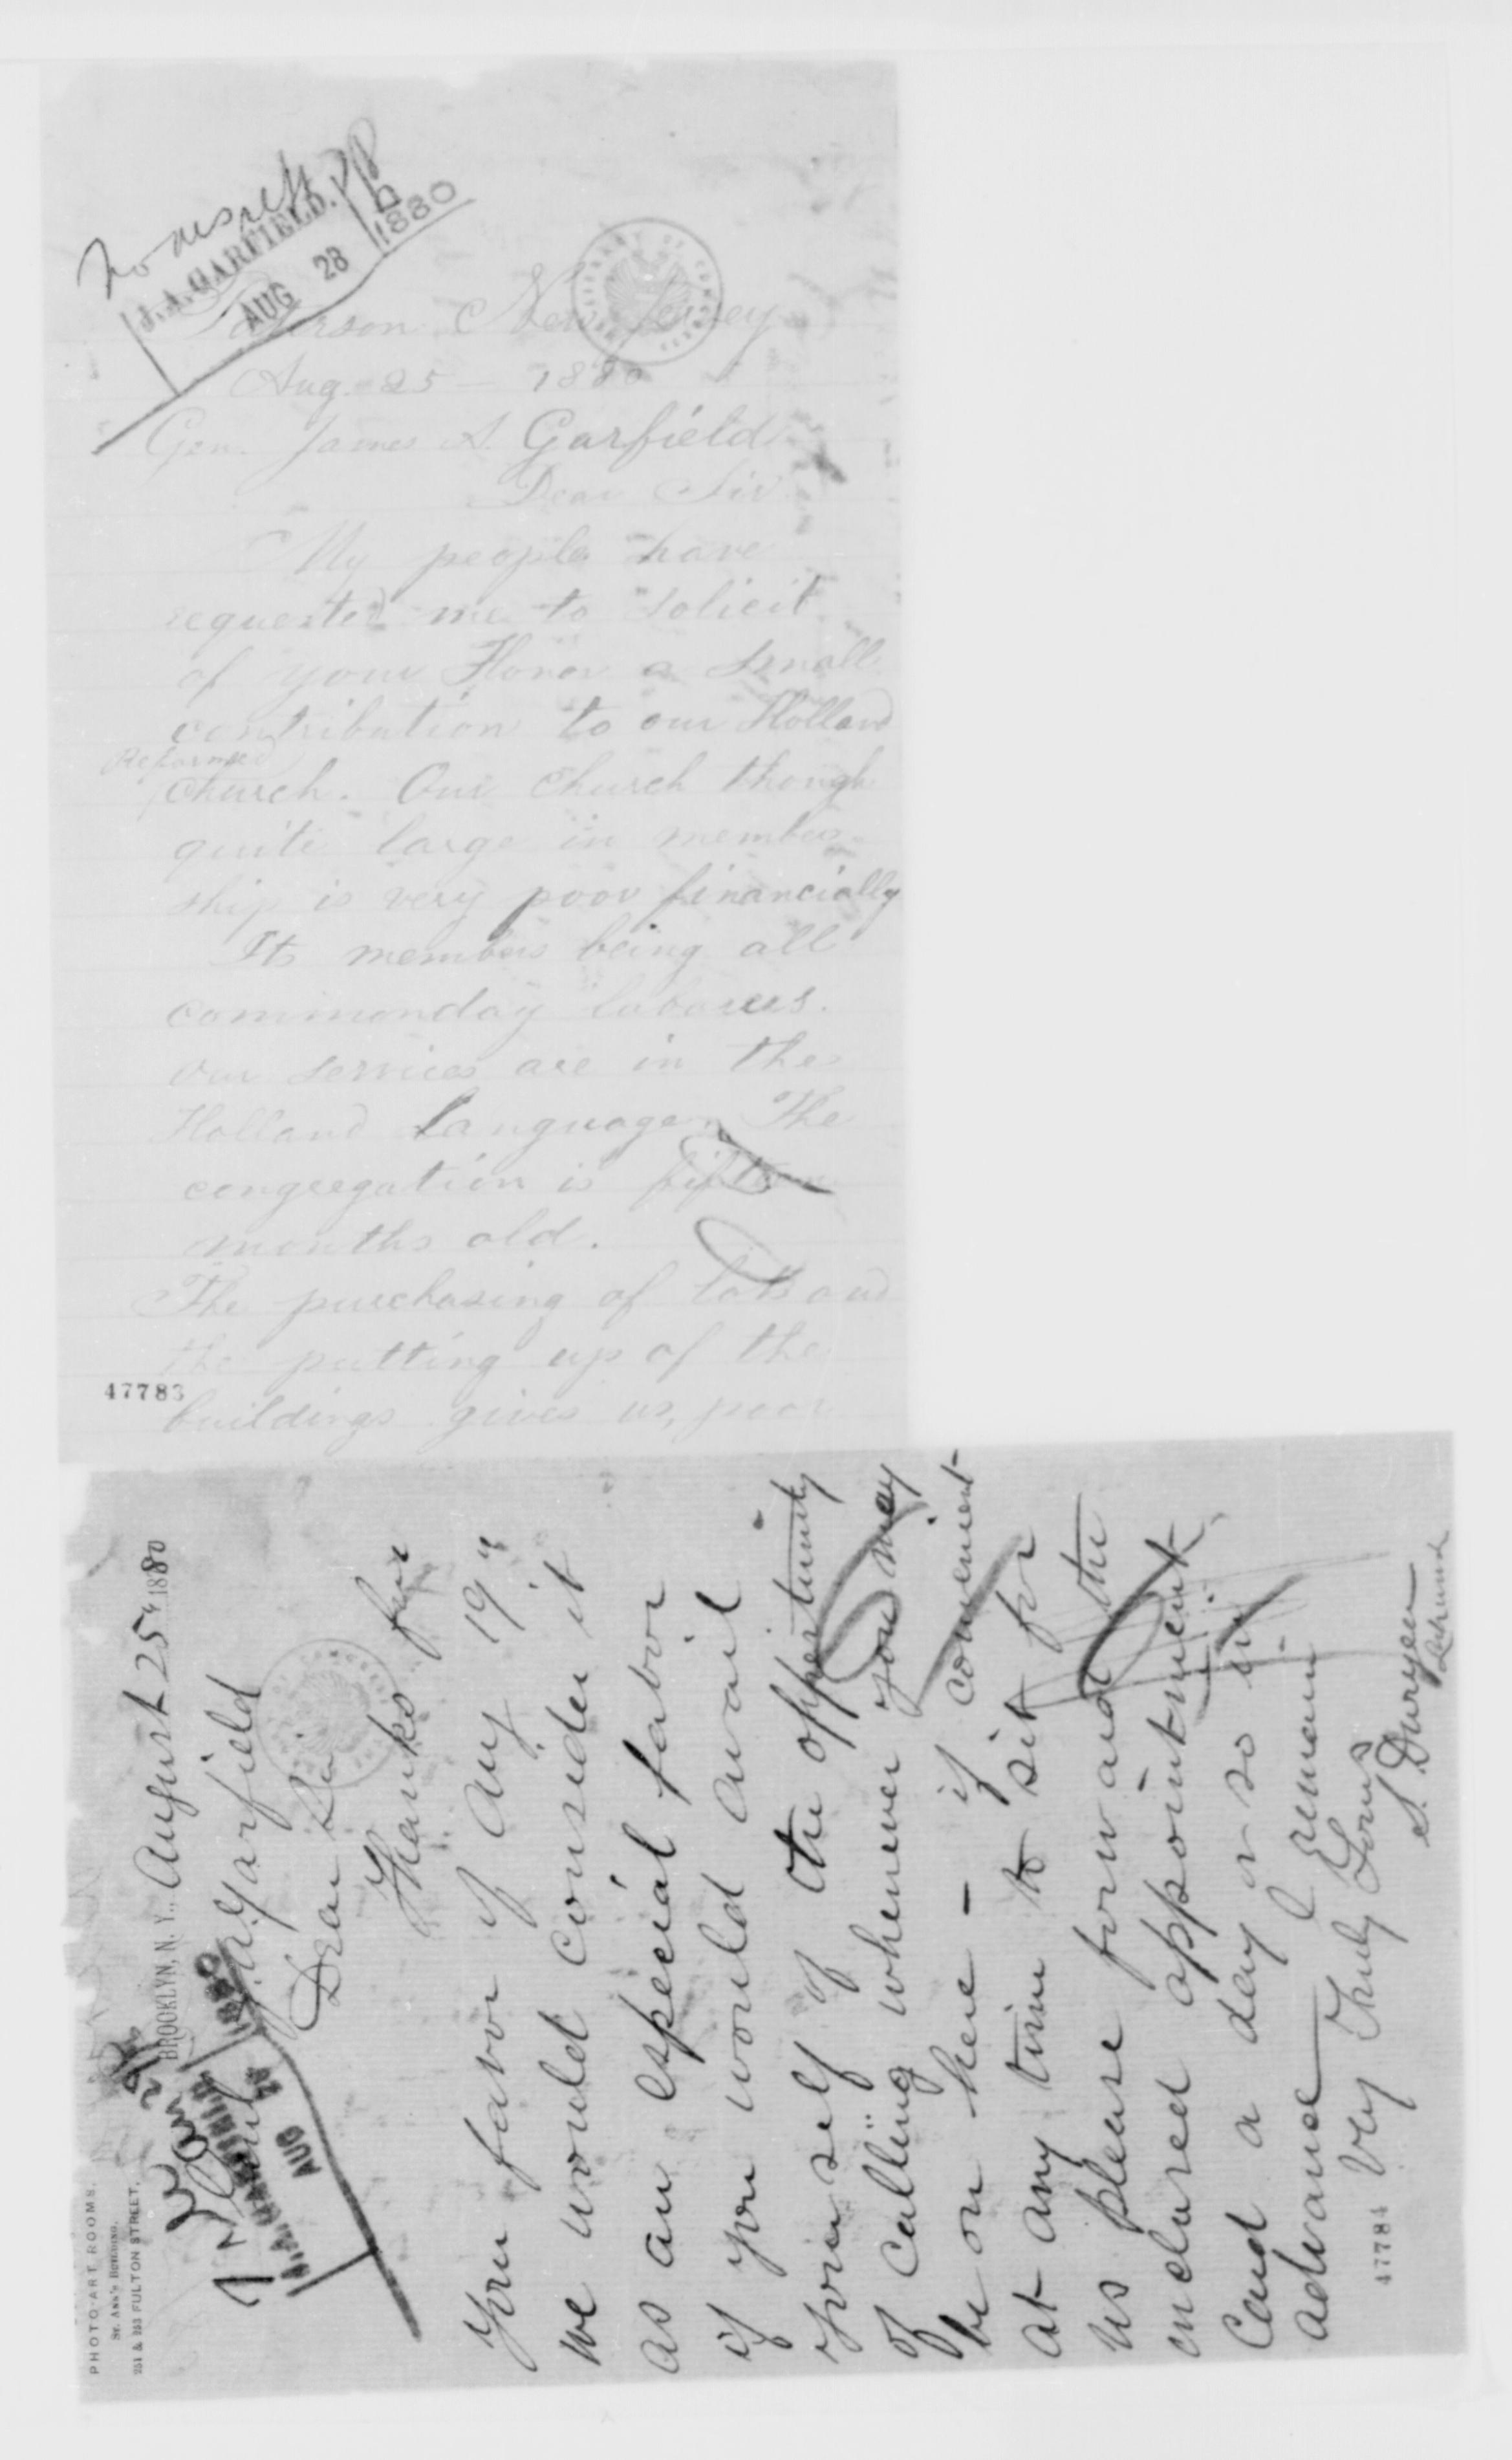 No answer
J. A. GARFIELD.
AUG 28 1880
LIBRARY OF CONGRESS
Paterson New Jersey
Aug 25 — 1880
Gen. James A. Garfield
Dear Sir
My people have
requested me to solicit
of your Honor a small
contribution to our Holland
Reformed
church. Our church though
quite large in member-
ship is very poor financially
Its members being all
commonday laborers.
our services are in the
Holland Language. The
congregation is fifteen
months old.
The purchasing of lots and
the putting up of the
buildings gives us, poor
47783
PHOTO-ART ROOMS.
St. Ann's Building.
251 & 253 FULTON STREET.
BROOKLYN, N. Y., August 25" 1880
J. A. GARFIELD
AUG 28 1880
J. A. Garfield
Dear Sir
Thanks for
your favor of Aug 19"
we would consider it
as an especial favor
if you would avail
yourself of the oppertunity
of calling whenever you may
be on here — if convenient
at any time to sit for
us please forward the
enclosed appointment
Card a day or so in
advance I remain
Very Truly Yours
S. Duryea
47784